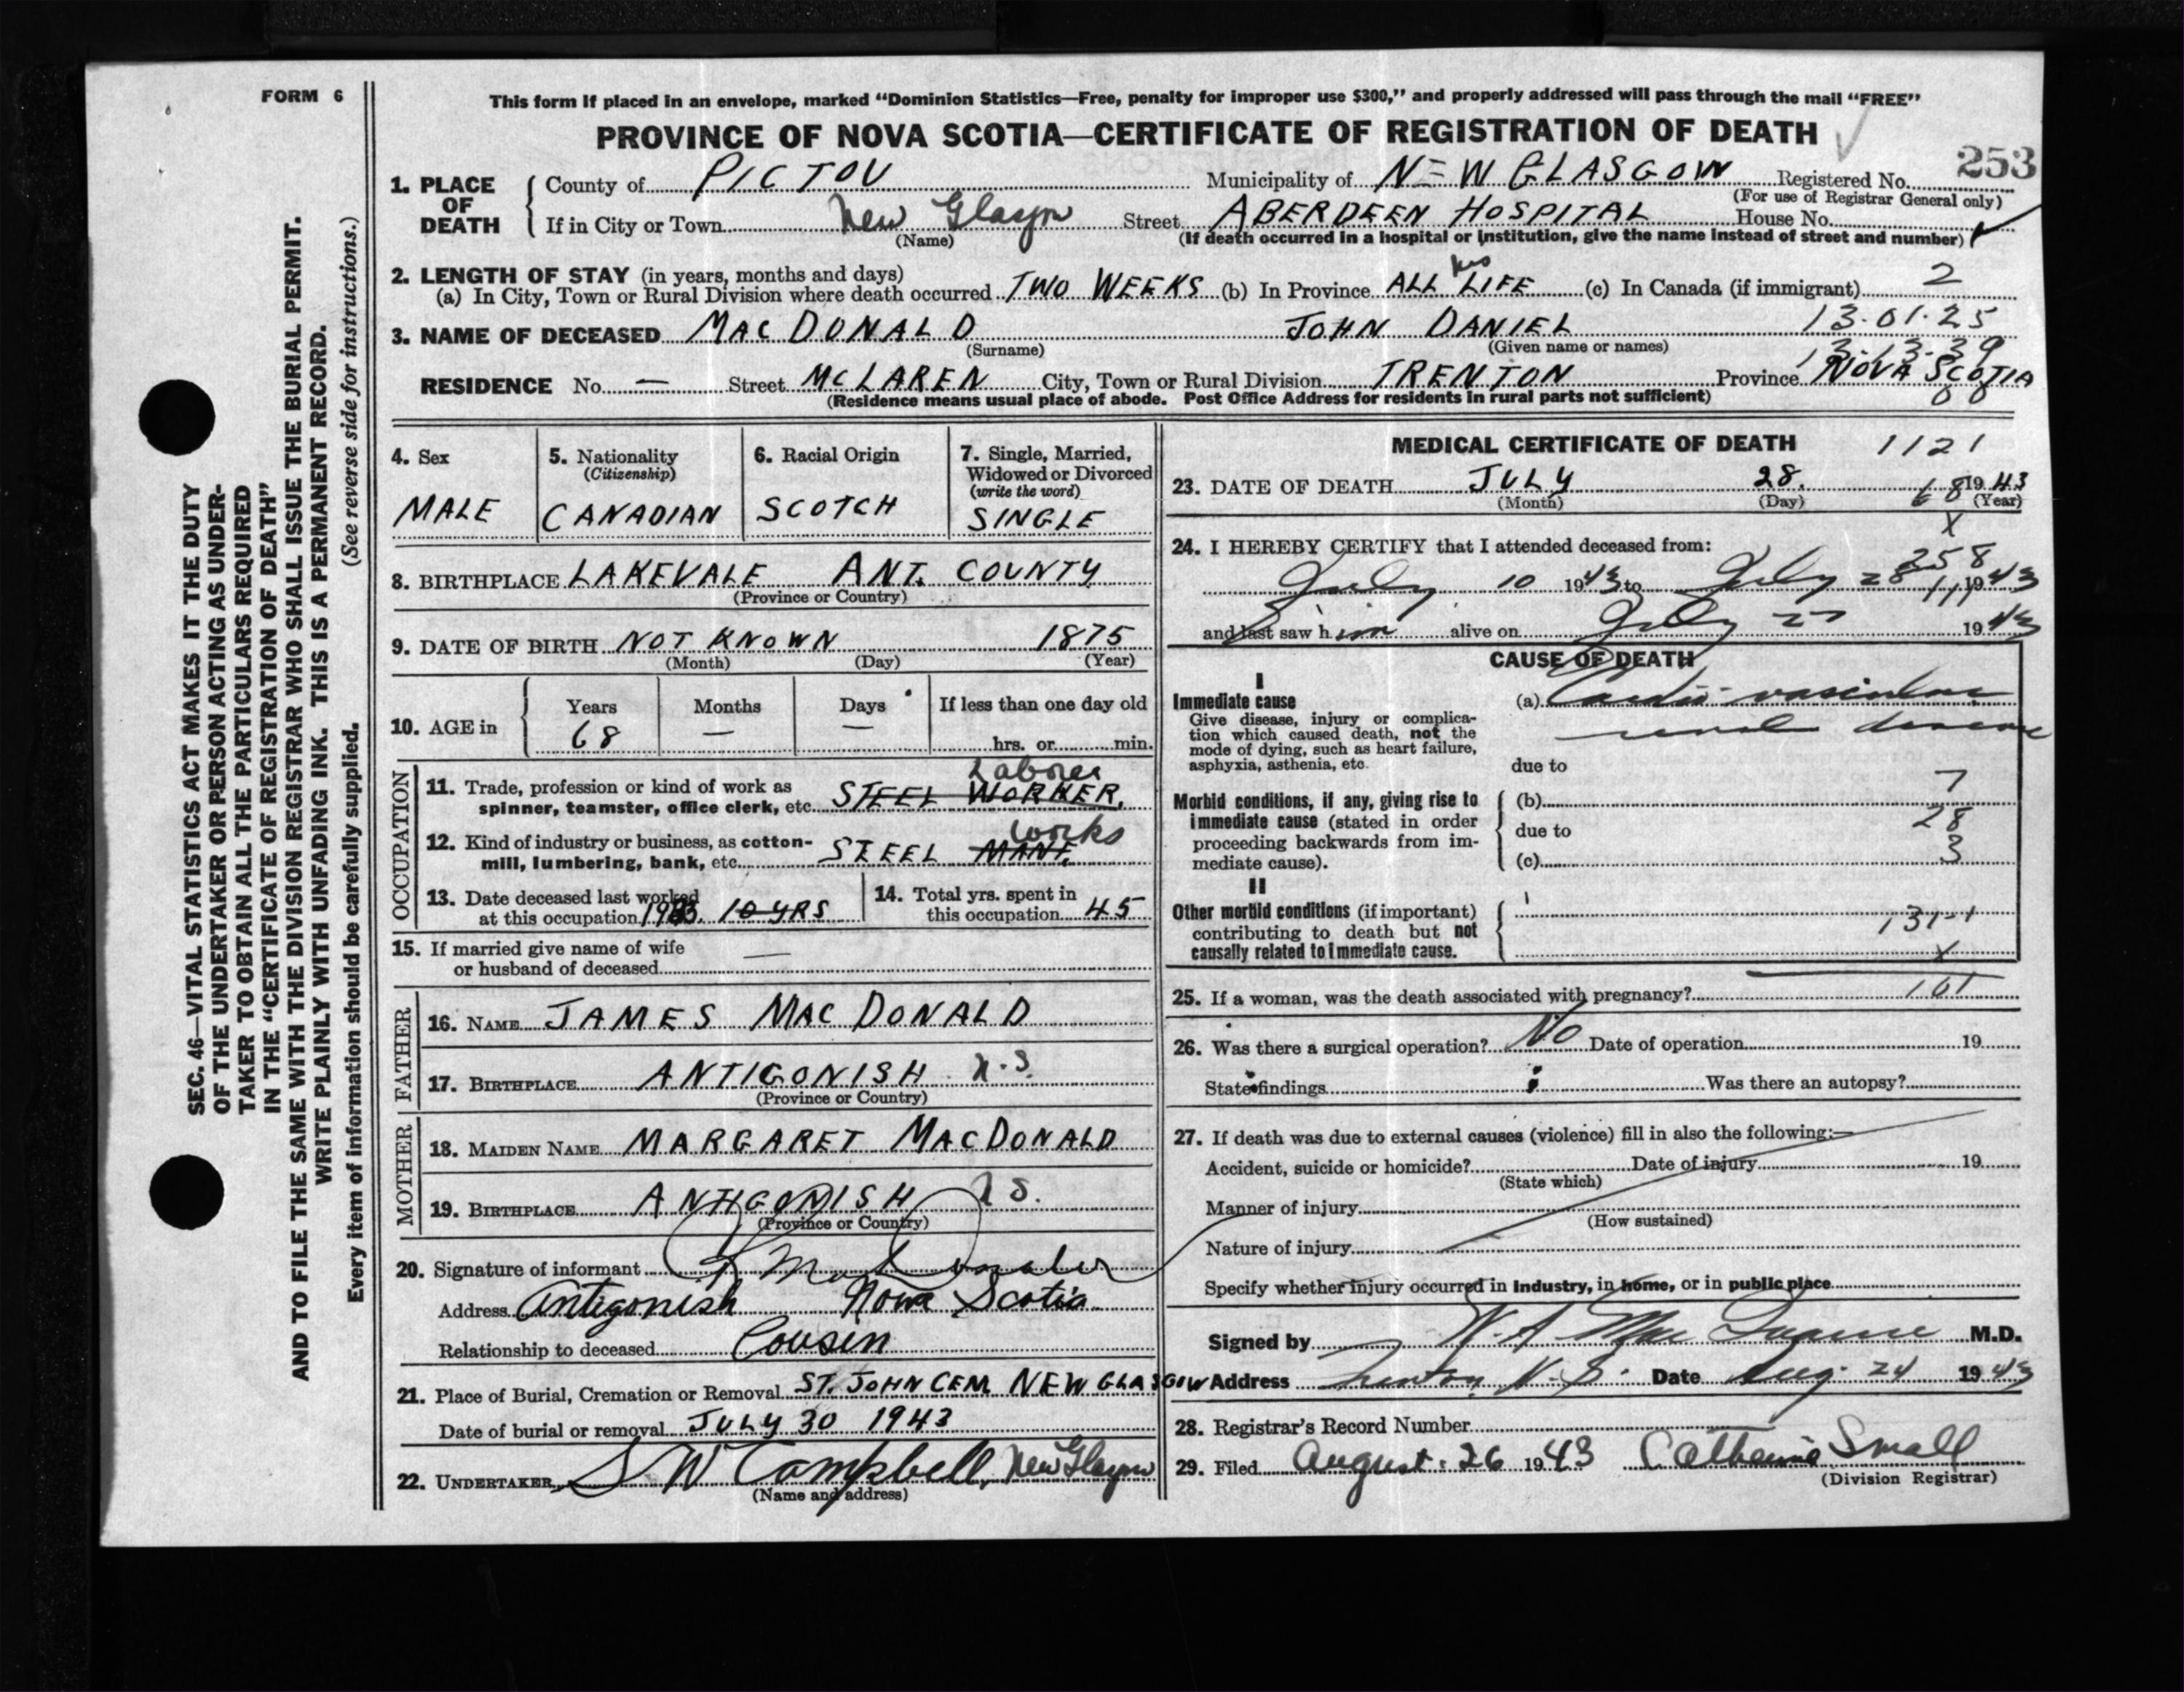 FORM 6
This form if placed in an envelope, marked “Dominion Statistics—Free, penalty for improper use $300,” and properly addressed will pass through the mail “FREE”
PROVINCE OF NOVA SCOTIA—CERTIFICATE OF REGISTRATION OF DEATH
253
SEC. 46—VITAL STATISTICS ACT MAKES IT THE DUTY
OF THE UNDERTAKER OR PERSON ACTING AS UNDER-
TAKER TO OBTAIN ALL THE PARTICULARS REQUIRED
IN THE “CERTIFICATE OF REGISTRATION OF DEATH”
AND TO FILE THE SAME WITH THE DIVISION REGISTRAR WHO SHALL ISSUE THE BURIAL PERMIT.
WRITE PLAINLY WITH UNFADING INK. THIS IS A PERMANENT RECORD.
Every item of information should be carefully supplied. (See reverse side for instructions.)
1. PLACE OF DEATH
County of PICTOU Municipality of NEW GLASGOW Registered No.
(For use of Registrar General only)
If in City or Town New Glasgow Street ABERDEEN HOSPITAL House No.
(Name) (If death occurred in a hospital or institution, give the name instead of street and number)
2. LENGTH OF STAY (in years, months and days)
(a) In City, Town or Rural Division where death occurred TWO WEEKS (b) In Province ALL his LIFE (c) In Canada (if immigrant) 2
3. NAME OF DECEASED MAC DONALD JOHN DANIEL 13-01-25
(Surname) (Given name or names) 13-13-39
RESIDENCE No. — Street MCLAREN City, Town or Rural Division TRENTON Province NOVA SCOTIA
(Residence means usual place of abode. Post Office Address for residents in rural parts not sufficient) 0 0
4. Sex
MALE
5. Nationality
(Citizenship)
CANADIAN
6. Racial Origin
SCOTCH
7. Single, Married,
Widowed or Divorced
(write the word)
SINGLE
8. BIRTHPLACE LAKEVALE ANT. COUNTY
(Province or Country)
9. DATE OF BIRTH NOT KNOWN 1875
(Month) (Day) (Year)
10. AGE in
Years Months Days If less than one day old
68 — — hrs. or min.
OCCUPATION
11. Trade, profession or kind of work as Laborer
spinner, teamster, office clerk, etc. STEEL WORKER.
12. Kind of industry or business, as cotton- works
mill, lumbering, bank, etc. STEEL MANF.
13. Date deceased last worked
at this occupation 1943. 10 YRS
14. Total yrs. spent in
this occupation 45
15. If married give name of wife
or husband of deceased —
FATHER
16. NAME JAMES MAC DONALD
17. BIRTHPLACE ANTIGONISH N.S.
(Province or Country)
MOTHER
18. MAIDEN NAME MARGARET MACDONALD
19. BIRTHPLACE ANTIGONISH N S.
(Province or Country)
20. Signature of informant MacDonald
Address Antigonish Nova Scotia
Relationship to deceased Cousin
21. Place of Burial, Cremation or Removal ST. JOHN CEM NEW GLASGOW
Date of burial or removal JULY 30 1943
22. UNDERTAKER S W Campbell, New Glasgow
(Name and address)
MEDICAL CERTIFICATE OF DEATH 1121
23. DATE OF DEATH JULY 28. 1943
(Month) (Day) 68 (Year)
X
24. I HEREBY CERTIFY that I attended deceased from:
258
July 10 1943 to July 28 1943
and last saw him alive on July 27 1943
CAUSE OF DEATH
I
Immediate cause
Give disease, injury or complica-
tion which caused death, not the
mode of dying, such as heart failure,
asphyxia, asthenia, etc.
(a) Cardio-vascular
renal disease
due to
Morbid conditions, if any, giving rise to
immediate cause (stated in order
proceeding backwards from im-
mediate cause).
(b) 7
due to 28
(c) 3
II
Other morbid conditions (if important)
contributing to death but not
causally related to immediate cause.
131-1
X
25. If a woman, was the death associated with pregnancy? 101
26. Was there a surgical operation? No Date of operation 19
State findings Was there an autopsy?
27. If death was due to external causes (violence) fill in also the following:—
Accident, suicide or homicide? Date of injury 19
(State which)
Manner of injury
(How sustained)
Nature of injury
Specify whether injury occurred in industry, in home, or in public place
Signed by W. A. Mac M.D.
Address Trenton N.S. Date Aug. 24 1943
28. Registrar’s Record Number
29. Filed August. 26 1943 Catherine Small
(Division Registrar)